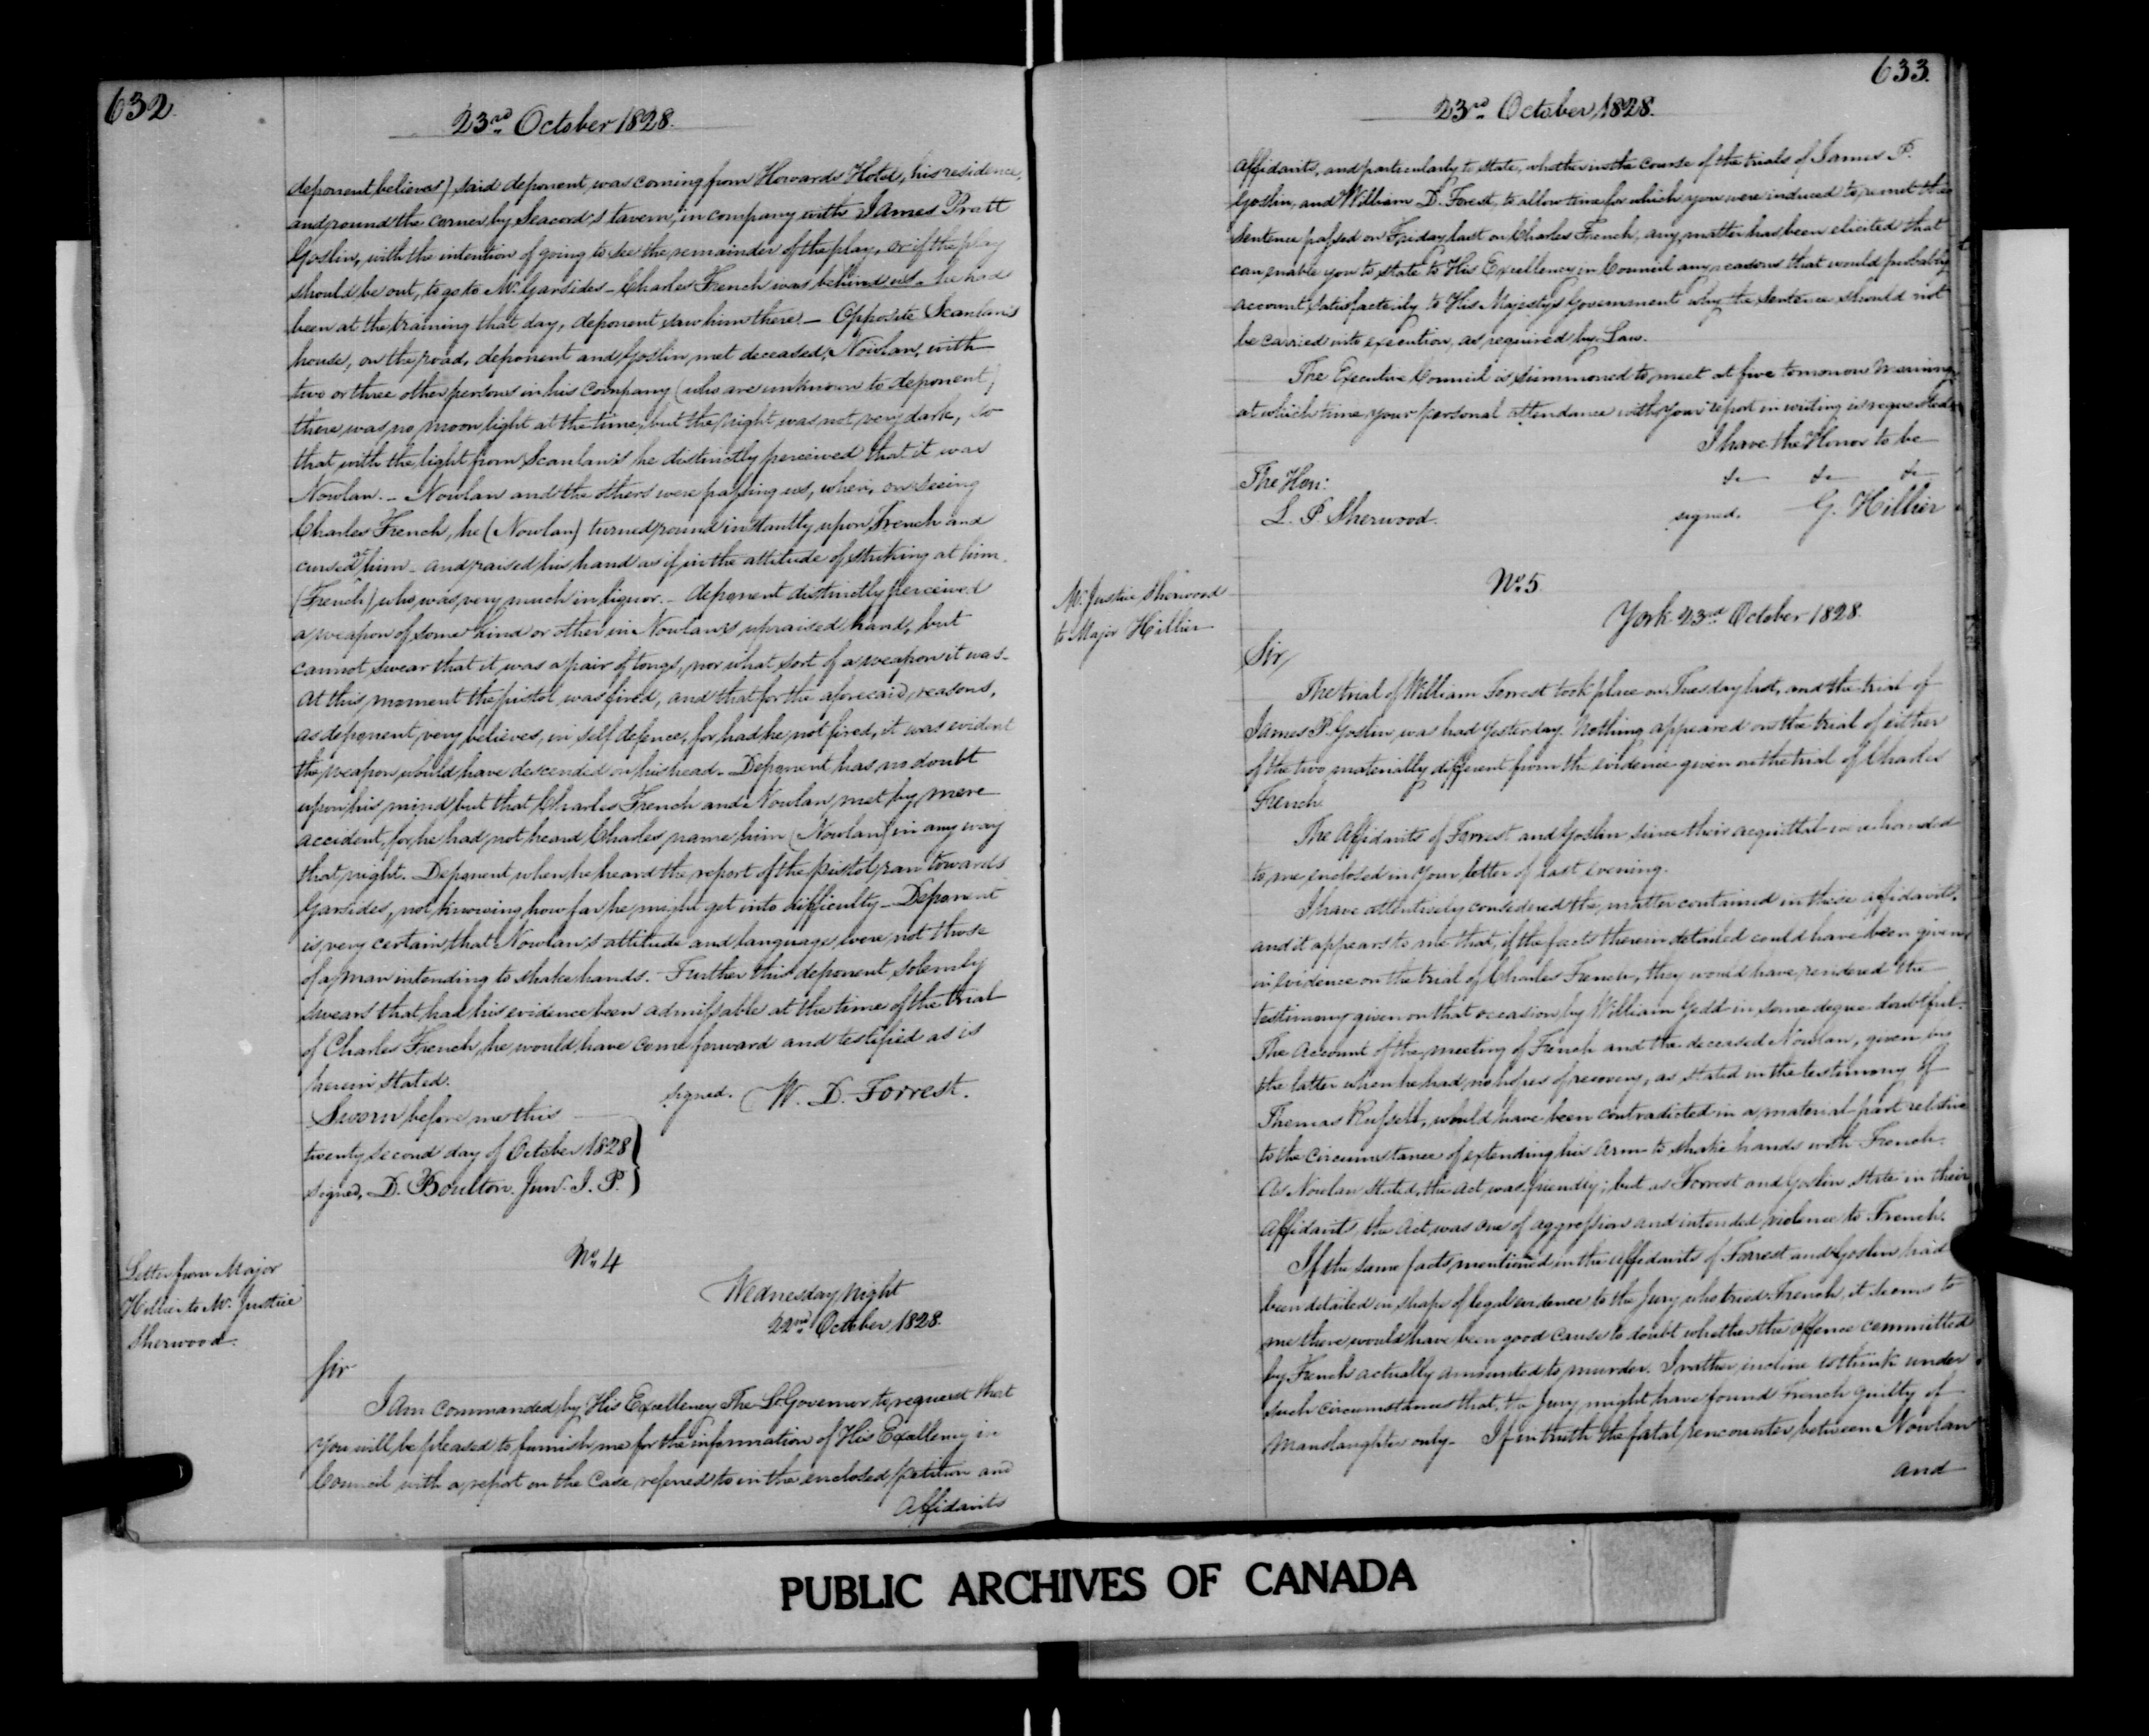 632.
23rd October 1828.
deponent believes) said deponent was coming from Howards Hotel, his residence,
and round the corner by Seacord's tavern, in company with James Pratt
Goslin, with the intention of going to see the remainder of the play, or if the play
should be out, to go to Mr. Garsides - Charles French was behind us - he had
been at the training that day, deponent saw him there - Opposite Scanlan's
house, on the road, deponent and Goslin met deceased, Nowlan, with
two or three other persons in his company (who are unknown to deponent)
there was no moon light at the time, but the night was not very dark, so
that with the light from Scanlan's he distinctly perceived that it was
Nowlan. - Nowlan and the others were passing us, when, on seeing
Charles French, he (Nowlan) turned round instantly upon French and
cursed him - and raised his hand as if in the attitude of striking at him
(French) who was very much in liquor. - deponent distinctly perceived
a weapon of some kind or other in Nowlan's upraised hand, but
cannot swear that it was a pair of tongs, nor what sort of a weapon it was -
at this moment the pistol was fired, and that for the aforesaid reasons,
as deponent very believes, in self defence, for had he not fired, it was evident
the weapon would have descended on his head - Deponent has no doubt
upon his mind but that Charles French and Nowlan met by mere
accident, for he had not heard Charles name him (Nowlan) in any way
that night. Deponent when he heard the report of the pistol ran towards
Garsides, not knowing how far he might get into difficulty - Deponent
is very certain that Nowlan's attitude and language were not those
of a man intending to shake hands. - Further this deponent solemnly
swears that had his evidence been admissable at the time of the trial
of Charles French, he would have come forward and testified as is
herein stated.
signed. W. D. Forrest.
Sworn before me this
twenty second day of October 1828
signed, D. Boulton. Junr. J. P.
No. 4
Letter from Major
Hillier to Mr. Justice
Sherwood.
Wednesday night
22nd October 1828.
Sir
I am commanded by His Excellency The Lt Governor to request that
you will be pleased to furnish me for the information of His Excellency in
Council with a report on the Case referred to in the enclosed petition and
Affidavits
633.
23rd October 1828.
Affidavits, and particularly to state, whether in the course of the trials of James P.
Goslin, and William D. Forest, to allow time for which you were induced to remit the
sentence passed on Friday last on Charles French, any matter has been elicited that
can enable you to state to His Excellency in Council any reasons that would probably
account satisfactorily to His Majesty's Government why the sentence should not
be carried into execution, as required by Law.
The Executive Council is summoned to meet at five tomorrow
at which time your personal attendance with your report in writing is requested
I have the Honor to be
&c &c &c
The Hon:
L. P. Sherwood.
signed. G. Hillier
No. 5.
Mr. Justice Sherwood
to Major Hillier
York 23rd October 1828.
Sir,
The trial of William Forrest took place on Tuesday last, and the trial of
James P. Goslin was had yesterday. Nothing appeared on the trial of either
of the two materially different from the evidence given on the trial of Charles
French.
The Affidavits of Forrest and Goslin since their acquittal were handed
to me enclosed in your letter of last evening.
I have attentively considered the matter contained in these affidavits,
and it appears to me that, if the facts therein detailed could have been given
in evidence on the trial of Charles French, they would have rendered the
testimony given on that occasion by William Gedd in some degree doubtful.
The Account of the meeting of French and the deceased Nowlan, given by
the latter when he had no hopes of recovery, as stated in the testimony of
Thomas Russell, would have been contradicted in a material part relative
to the circumstance of extending his arm to shake hands with French.
As Nowlan stated, the act was friendly; but as Forrest and Goslin state in their
affidavits, the act was one of aggression and intended violence to French.
If the same facts mentioned in the affidavits of Forrest and Goslin had
been detailed in shape of legal evidence to the Jury who tried French, it seems to
me there would have been good cause to doubt whether the offence committed
by French actually amounted to murder. I rather incline to think under
such circumstances that, the Jury might have found French guilty of
Manslaughter only. - If in truth the fatal rencounter between Nowlan
and
PUBLIC ARCHIVES OF CANADA